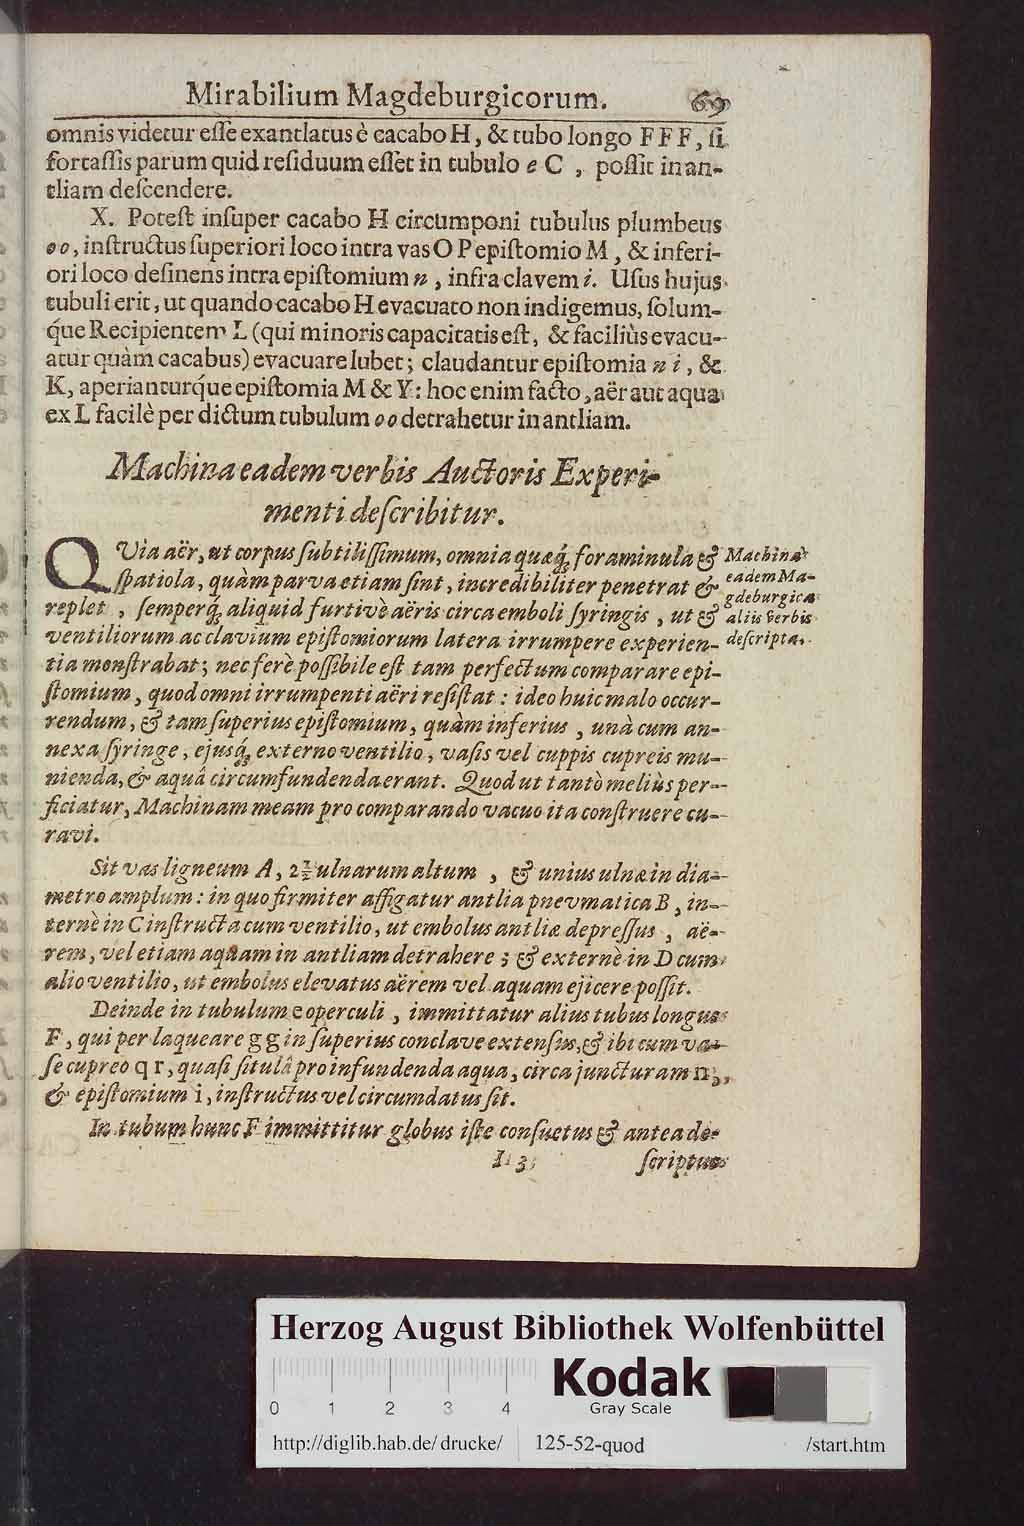 Mirabilium Magdeburgicorum. 69
omnis videtur eſſe exantlatus è cacabo H, & tubo longo F F F, ſi
fortaſſis parum quid reſiduum eſſet in tubulo e C , poſſit in an-
tliam deſcendere.
X. Poteſt inſuper cacabo H circumponi tubulus plumbeus
oo, inſtructus ſuperiori loco intra vas O P epiſtomio M, & inferi-
ori loco deſinens intra epiſtomium n, infra clavem i. Uſus hujus
tubuli erit, ut quando cacabo H evacuato non indigemus, ſolum-
q́ue Recipientem L (qui minoris capacitatis eſt, & faciliùs evacu-
atur quàm cacabus) evacuare lubet; claudantur epiſtomia n i, &
K, aperianturq́ue epiſtomia M & Y: hoc enim facto, aër aut aqua
ex L facilè per dictum tubulum oo detrahetur in antliam.
Machina eadem verbis Auctoris Experi-
menti deſcribitur.
QVia aër, ut corpus ſubtiliſſimum, omnia quæq́; foraminula &
ſpatiola, quàm parva etiam ſint, incredibiliter penetrat &
replet , ſemperq́; aliquid furtivè aëris circa emboli ſyringis , ut &
ventiliorum ac clavium epiſtomiorum latera irrumpere experien-
tia monſtrabat; nec ferè poſſibile eſt tam perfectum comparare epi-
ſtomium, quod omni irrumpenti aëri reſiſtat: ideo huic malo occur-
rendum, & tam ſuperius epiſtomium, quàm inferius , unà cum an-
nexa ſyringe, ejusq́; externo ventilio, vaſis vel cuppis cupreis mu-
nienda, & aquâ circumfundenda erant. Quod ut tantò meliùs per-
ficiatur, Machinam meam pro comparando vacuo ita conſtruere cu-
ravi.
Machina
eadem Ma-
gdeburgica
aliis verbis
deſcripta.
Sit vas ligneum A, 2½ ulnarum altum , & unius ulnæ in dia-
metro amplum: in quo firmiter affigatur antlia pnevmatica B, in-
ternè in C inſtructa cum ventilio, ut embolus antliæ depreſſus , aë-
rem, vel etiam aquam in antliam detrahere ; & externè in D cum
alio ventilio, ut embolus elevatus aërem vel aquam ejicere poſſit.
Deinde in tubulum e operculi , immittatur alius tubus longus
F, qui per laqueare g g in ſuperius conclave extenſus, & ibi cum va-
ſe cupreo q r, quaſi ſitulâ pro infundenda aqua, circa juncturam n,
& epiſtomium i, inſtructus vel circumdatus ſit.
In tubum hunc F immittitur globus iſte conſuetus & antea de-
I 3 ſcriptus
Herzog August Bibliothek Wolfenbüttel
0 1 2 3 4
Kodak
Gray Scale
http://diglib.hab.de/drucke/ 125-52-quod /start.htm